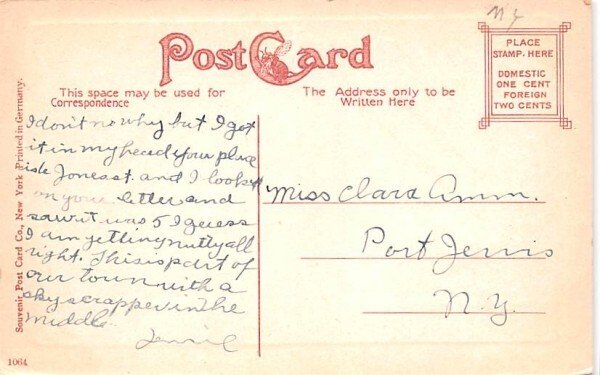 N Y
Post Card
PLACE
STAMP. HERE
DOMESTIC
ONE CENT
FOREIGN
TWO CENTS
This space may be used for
Correspondence
The Address only to be
Written Here
I don't no why but I got
it in my head your place
Jones st. and I looked
on your letter and
saw it was 5 I guess
I am getting nutty all
right. This is part of
our town with a
sky scrapper in the
middle.
Jennie
Miss Clara Amm.
Port Jervis
N. Y.
Souvenir Post Card Co., New York Printed in Germany.
1064